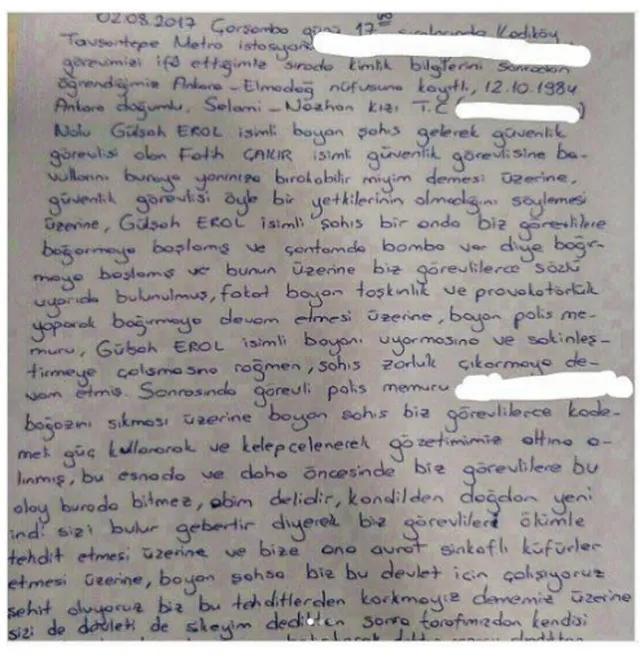 02.08.2017 Çarşamba günü 17:30 sıralarında Kadıköy
Tavşantepe Metro istasyon
görevimizi ifa ettiğimiz sırada kimlik bilgilerini sonradan
öğrendiğimiz Ankara-Elmadağ nüfusuna kayıtlı, 12.10.1984
Ankara doğumlu, Selami-Nözhan kızı T.C ( )
Nolu Gülşah EROL isimli bayan şahıs gelerek güvenlik
görevlisi olan Fatih ÇAKIR isimli güvenlik görevlisine ba-
vullarını buraya yanınıza bırakabilir miyim demesi üzerine,
güvenlik görevlisi öyle bir yetkilerinin olmadığını söylemesi
üzerine, Gülşah EROL isimli şahıs bir anda biz görevlilere
bağırmaya başlamış ve çantamda bomba var diye bağır-
maya başlamış ve bunun üzerine biz görevlilerce sözlü
uyarıda bulunulmuş, fakat bayan taşkınlık ve provakatörlük
yaparak bağırmaya devam etmesi üzerine, bayan polis me-
muru, Gülşah EROL isimli bayanı uyarmasına ve sakinleş-
tirmeye çalışmasına rağmen, şahıs zorluk çıkarmaya de-
vam etmiş. Sonrasında görevli polis memuru
boğazını sıkması üzerine bayan şahıs biz görevlilerce kade-
meli güç kullanarak ve kelepçelenerek gözetimimiz altına a-
lınmış, bu esnada ve daha öncesinde biz görevlilere bu
olay burada bitmez, abim delidir, kandilden dağdan yeni
indi sizi bulur gebertir diyerek biz görevlileri ölümle
tehdit etmesi üzerine ve bize ana avrat sinkaflı küfürler
etmesi üzerine, bayan şahsa biz bu devlet için çalışıyoruz
şehit oluyoruz biz bu tehditlerden korkmayız dememiz üzerine
sizi de devleti de s.keyim dedikten sonra tarafımızdan kendisi